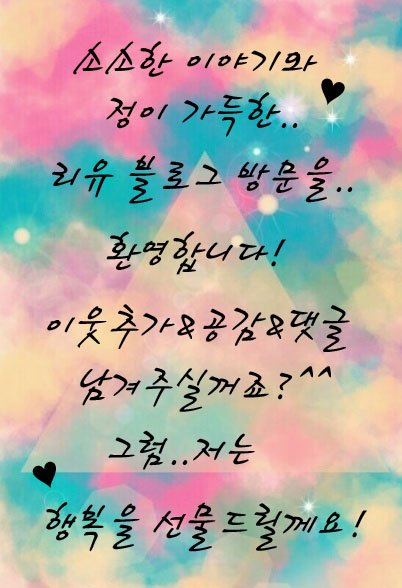 소소한 이야기와
정이 가득한..
리유 블로그 방문을..
환영합니다!
이웃추가&공감&댓글
남겨주실꺼죠?^^
그럼..저는
행획을 선물드릴께요!